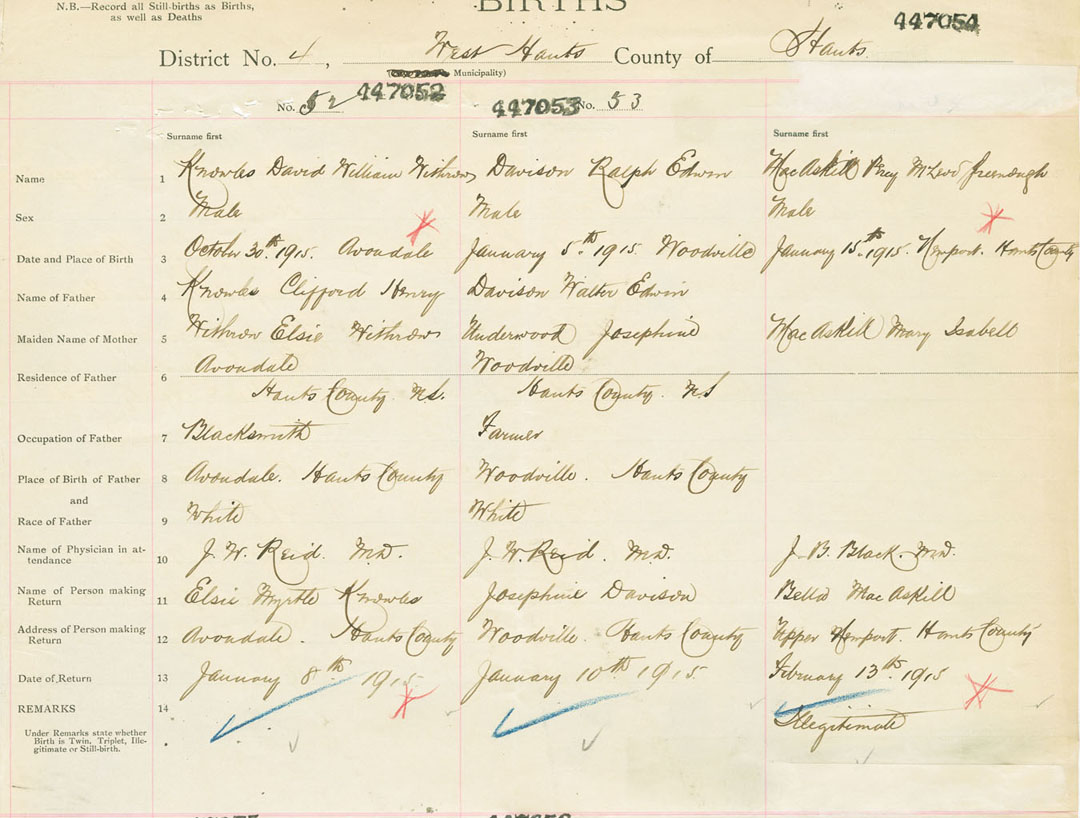 N.B.—Record all Still-births as Births,
as well as Deaths
BIRTHS
447054
District No. 4, West Hants County of Hants
Municipality)
No. 52 447052 447053 No. 53
Surname first Surname first Surname first
Name 1 Knowles David William Withrow Davison Ralph Edwin MacAskill Percy McLeod Greenough
Sex 2 Male Male Male
Date and Place of Birth 3 October 30th 1915. Avondale January 5th 1915 Woodville January 15th 1915. Newport. Hants County
Name of Father 4 Knowles Clifford Henry Davison Walter Edwin
Maiden Name of Mother 5 Withrow Elsie Withrow Underwood Josephine MacAskill Mary Isabell
Avondale Woodville
Residence of Father 6
Hants County. N.S. Hants County. N.S
Occupation of Father 7 Blacksmith Farmer
Place of Birth of Father 8 Avondale. Hants County Woodville. Hants County
and
Race of Father 9 White White
Name of Physician in at-
tendance 10 J. W. Reid. M.D. J. W. Reid. M.D. J. B. Black. M.D.
Name of Person making
Return 11 Elsie Myrtle Knowles Josephine Davison Bella MacAskill
Address of Person making
Return 12 Avondale. Hants County Woodville. Hants County Upper Newport. Hants County
Date of Return 13 January 8th 1915 January 10th 1915. February 13th 1915
REMARKS 14
Illegitimate
Under Remarks state whether
Birth is Twin, Triplet, Ille-
gitimate or Still-birth.